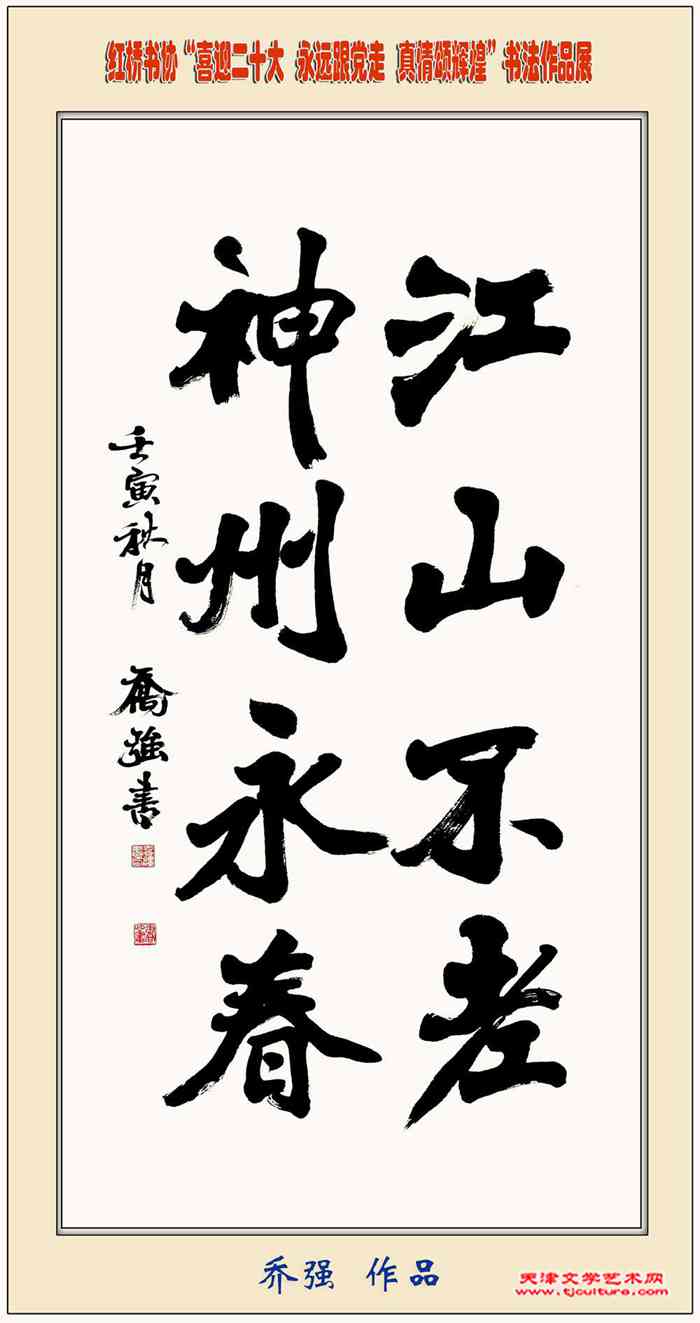 红桥书协“喜迎二十大 永远跟党走 真情颂辉煌”书法作品展
江山不老
神州永春
壬寅秋月 喬強書
乔强 作品
天津文学艺术网
www.tjculture.com